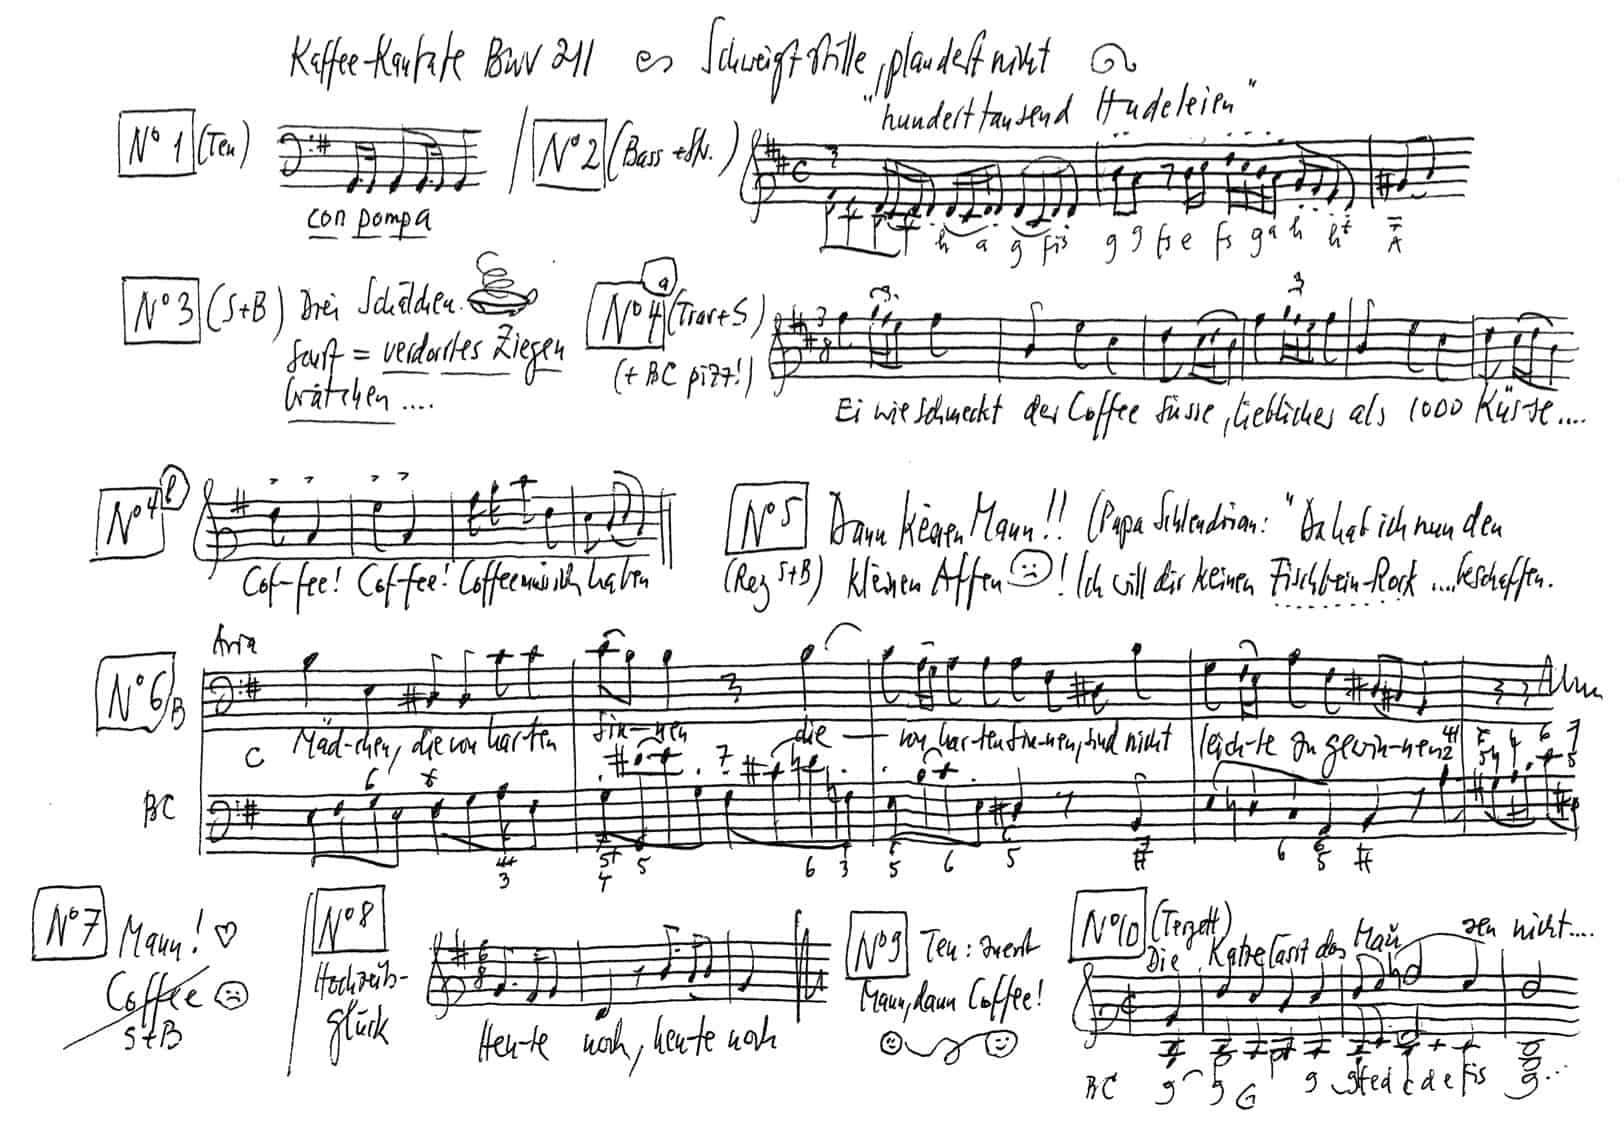 Kaffee-Kantate BWV 211 Schweigt stille, plaudert nicht
"hunderttausend Hudeleien"
No 1 (Ten)
con pompa
No 2 (Bass + Str.)
C
h a g fis g g fis e fs g a h A
No 3 (S+B) Drei Schälchen
sonst = verdorrtes Ziegen
brätchen ....
No 4 a (Trav+S)
(+ BC pizz!)
3
8
3
Ei wie schmeckt der Coffee süsse, lieblicher als 1000 Küsse ....
No 4 b
Cof-fee! Cof-fee! Coffee muss ich haben
No 5 Dann keinen Mann!! (Papa Schlendrian: "Da hat ich nun den
(Rez S+B) kleinen Affen ! Ich will dir keinen Fischbein-Rock .... beschaffen.
Aria
No 6 B
C Mäd-chen, die von harten Sin-nen die — von har-ten Sin-nen, sind nicht leich-te zu gewin-nen
BC
6 6
5 6 3 5 6 5 7 6 6 5
No 7 Mann!
Coffee
S+B
No 8
Hochzeits-
glück
6
8
Heu-te noch, heute noch
No 9 Ten: zuerst
Mann, dann Coffee!
No 10 (Terzett)
Die Katze lässt das Mau sen nicht....
BC g g G g g f e d c d e fis g...